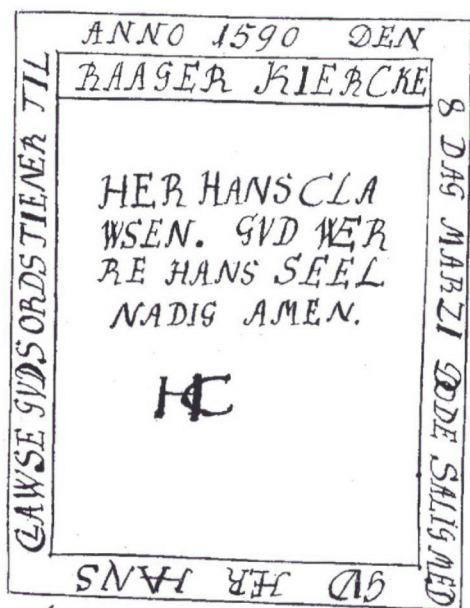 ANNO 1590 DEN
8 DAG MARZI DØDE SALIG MED
GVD HER HANS
CLAWSE GVDS ORDS TIENER TIL
RAAGER KIERCKE
HER HANS CLA
WSEN. GVD WER
RE HANS SEEL
NADIG AMEN.
HC